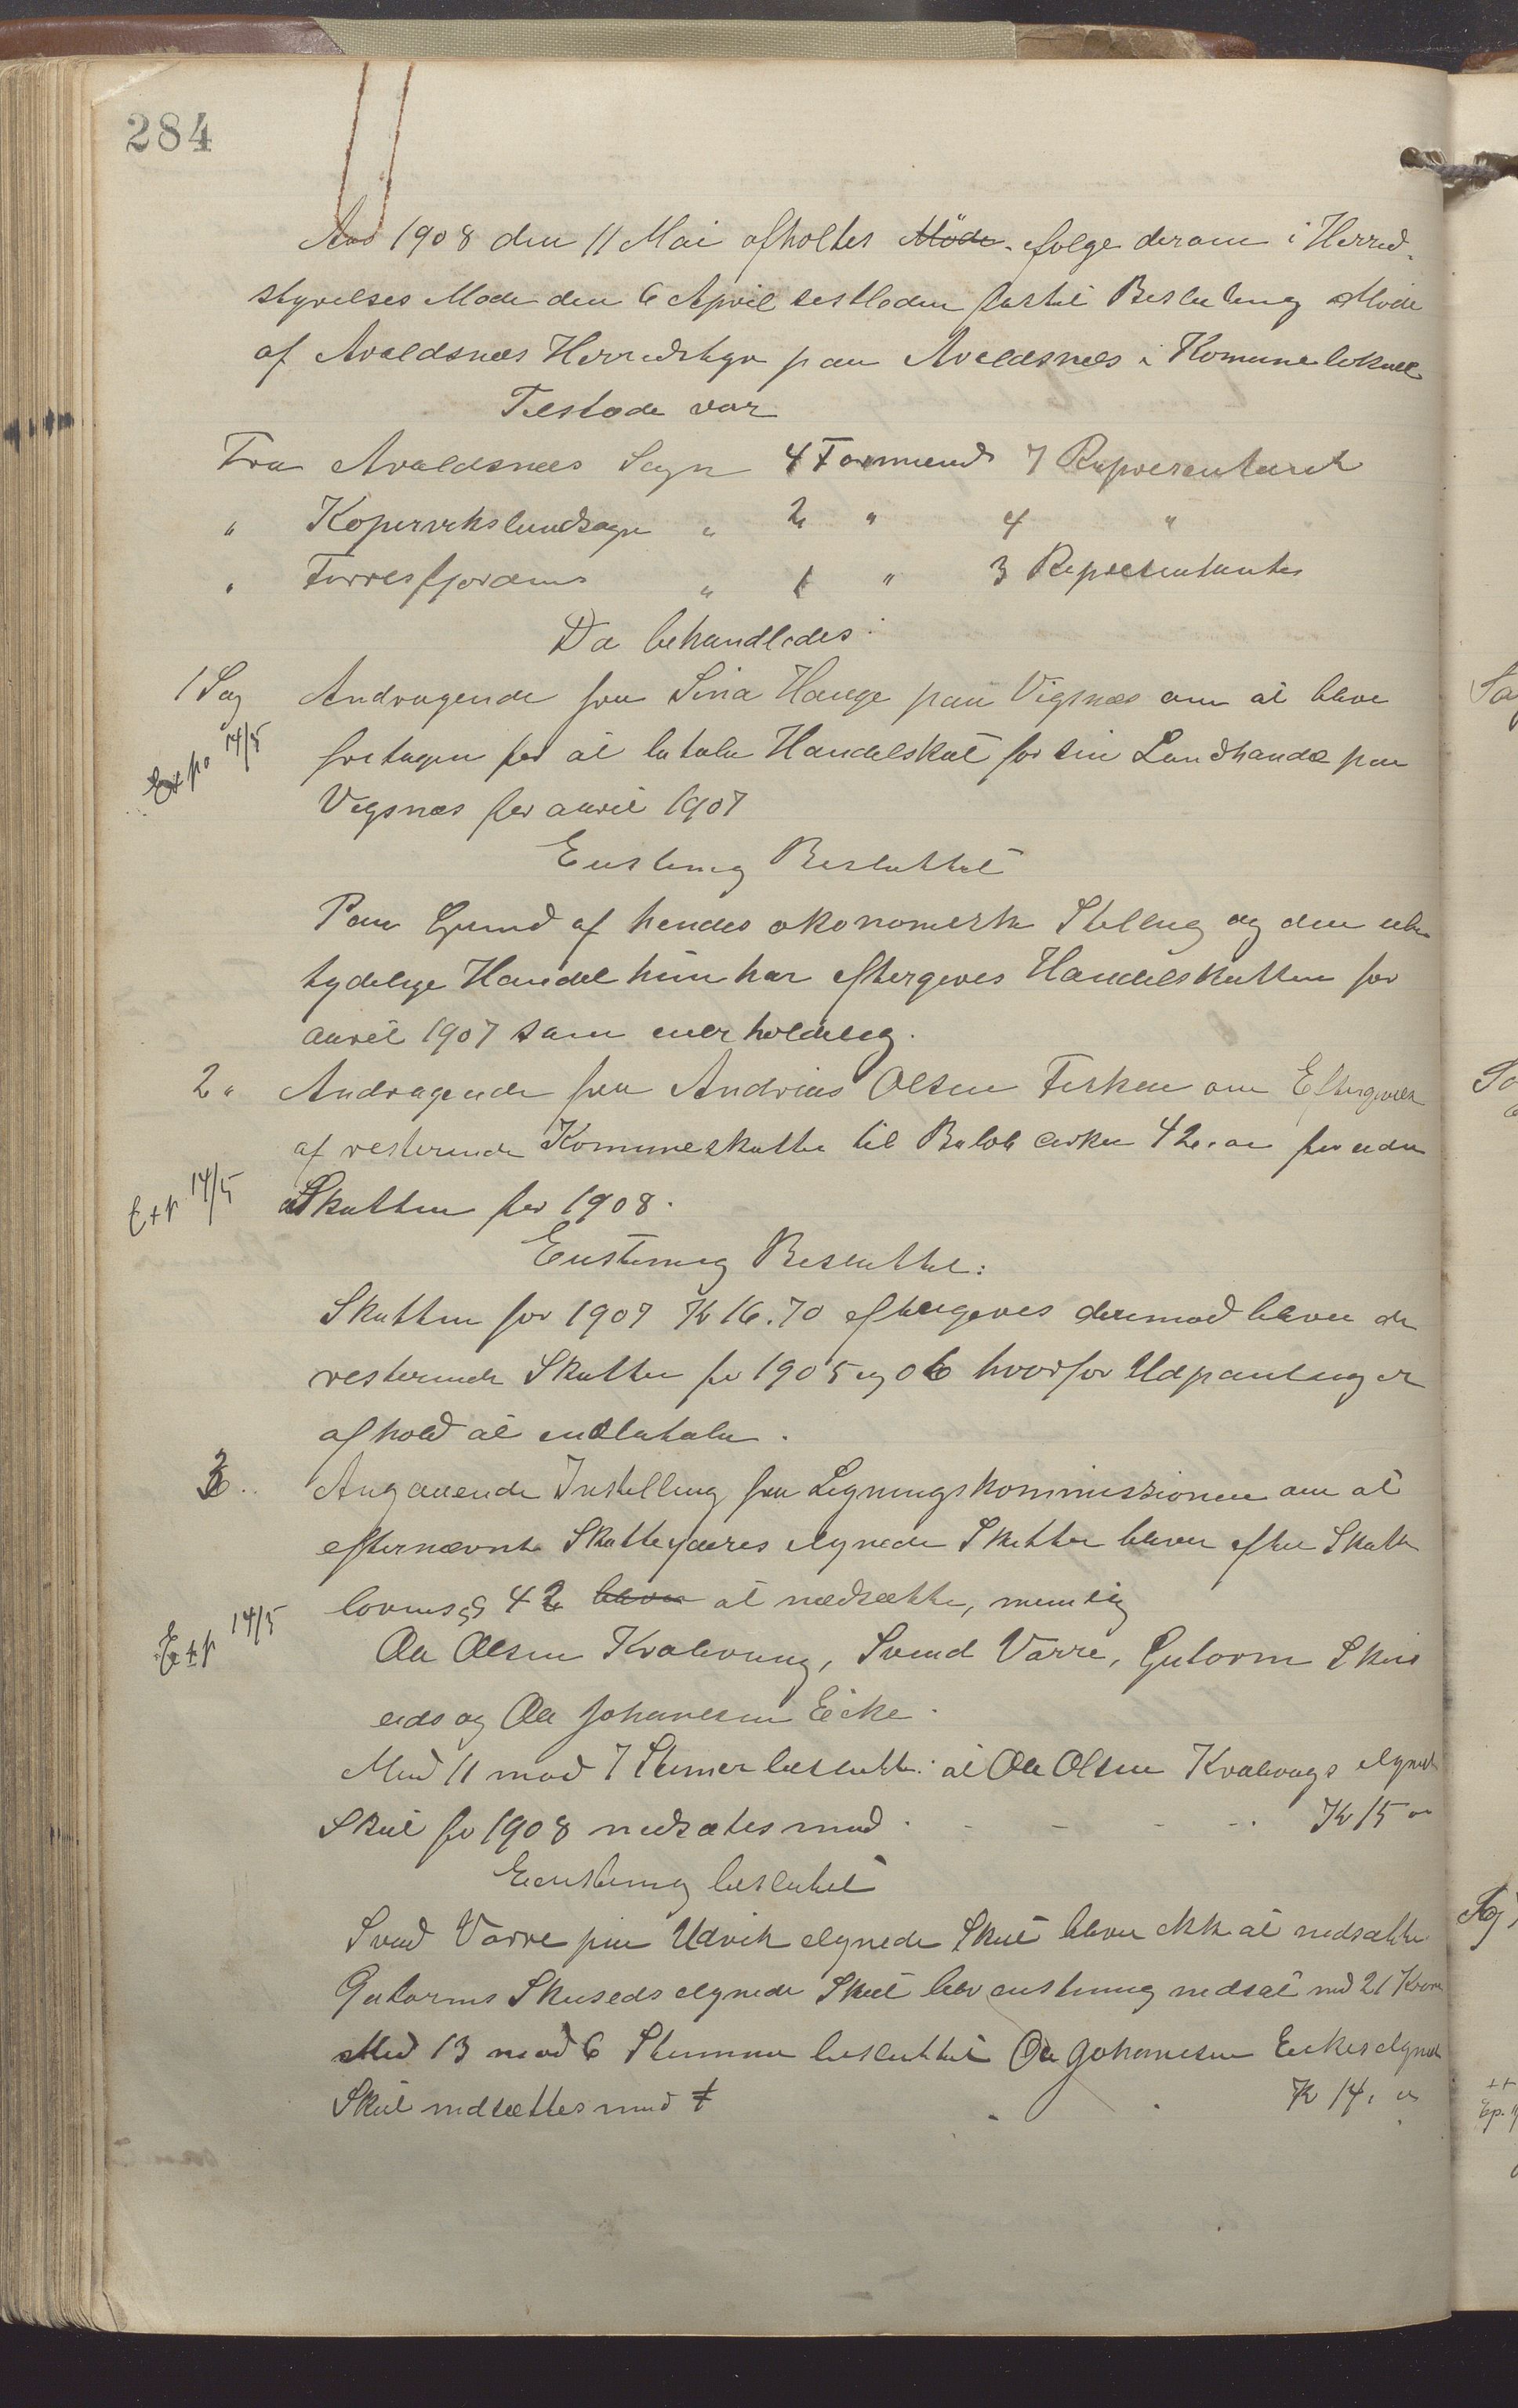 284
Aar 1908 den 11 Mai afholtes Møde. følge derom i Herred-
styrelses Møde den 6 April sestleden fattet Beslutning Møde
af Avaldsnes Herredstyr paa Avaldsnes i Komunelokale
Tilstede var
Fra Avaldsnes Sogn 4 Formænd 7 Representant
" Kopervikslandsogn " 2 " 4 "
" Førresfjordens " 1 " 3 Representanter
Da behandledes:
1 Sag Andragende fra Sina Hauge paa Vigsnes om at blive
Exp 14/5 fritagen for at betale Handelskat for sin Landhandel paa
Vigsnes for aaret 1907
Enstemig Besluttet
Paa Grund af hendes økonomiske Stilling og den ube
tydelige Handel hun har eftergives Handelskatten for
aaret 1907 som uerholdelig.
2 " Andragende fra Andreas Olsen Fisken om Eftergivelse
af resterende Komuneskatter til Beløb cirka 42.00 foruden
Exp 14/5 Skatten for 1908.
Enstemig Besluttet:
Skatten for 1907 Kr 16.70 eftergives derimod bliver de
resterende Skatter for 1905 og 06 hvorfor Udpantning er
afhold at indbetale.
3 .. Angaaende Instilling fra Ligningskommissionen om at
efternævnte Skatteyderes ilignede Skatter bliver efter Skatte
lovens § 42 bliver at nedsætte, nemlig
Exp 14/5 Ola Olsen Kvalevaag, Svend Varre, Gutorm Skeis
eids og Ola Johanesen Eike.
Med 11 mod 7 Stemer besluttet: at Ola Olsen Kvalevags ilignede
Skat for 1908 nedsættes med . - - - . Kr 15 00
Eenstemig besluttet
Svend Varre paa Udvik ilignede Skat bliver ikke at nedsætte
Gutorms Skeiseds ilignede Skat blev enstemig nedsat med 21 Kroner
Med 13 mod 6 Stemmer besluttet Ola Johanesen Eikes ilignede
Skat nedsættes med . . Kr 14, 00